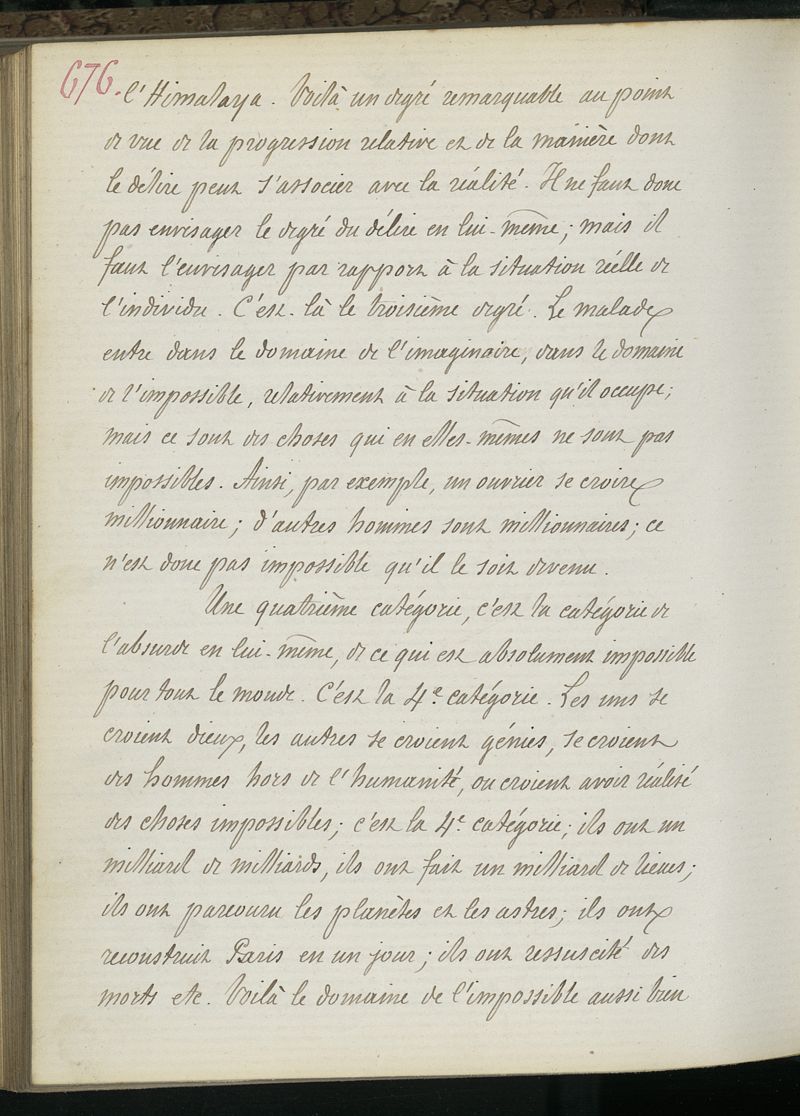 676.
l'Himalaya. Voilà un degré remarquable au point
de vue de la progression relative et de la manière dont
le délire peut s'associer avec la réalité. Il ne faut donc
pas envisager le degré du délire en lui-même; mais il
faut l'envisager par rapport à la situation réelle de
l'individu. C'est-là le troisième degré. Le malade
entre dans le domaine de l'imaginaire, dans le domaine
de l'impossible, relativement à la situation qu'il occupe;
mais ce sont des choses qui en elles-mêmes ne sont pas
impossibles. Ainsi, par exemple, un ouvrier se croire
millionnaire; d'autres hommes sont millionnaires; ce
n'est donc pas impossible qu'il le soit devenu.
Une quatrième catégorie, c'est la catégorie de
l'absurde en lui-même, de ce qui est absolument impossible
pour tout le monde. C'est la 4e catégorie. Les uns se
croient dieux, les autres se croient génies, se croient
des hommes hors de l'humanité, ou croient avoir réalité
des choses impossibles; c'est la 4e catégorie; ils ont un
milliard de milliards, ils ont fait un milliard de lieues;
ils ont parcouru les planètes et les astres; ils ont
reconstruit Paris en un jour; ils ont ressuscité des
morts etc. Voilà le domaine de l'impossible aussi bien